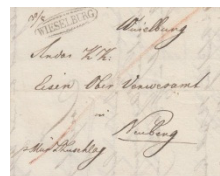 WIESELBURG
Wieselburg
An das K.K.
Eisen Ober Verwesamt
in
Neuberg
Mürzzuschlag